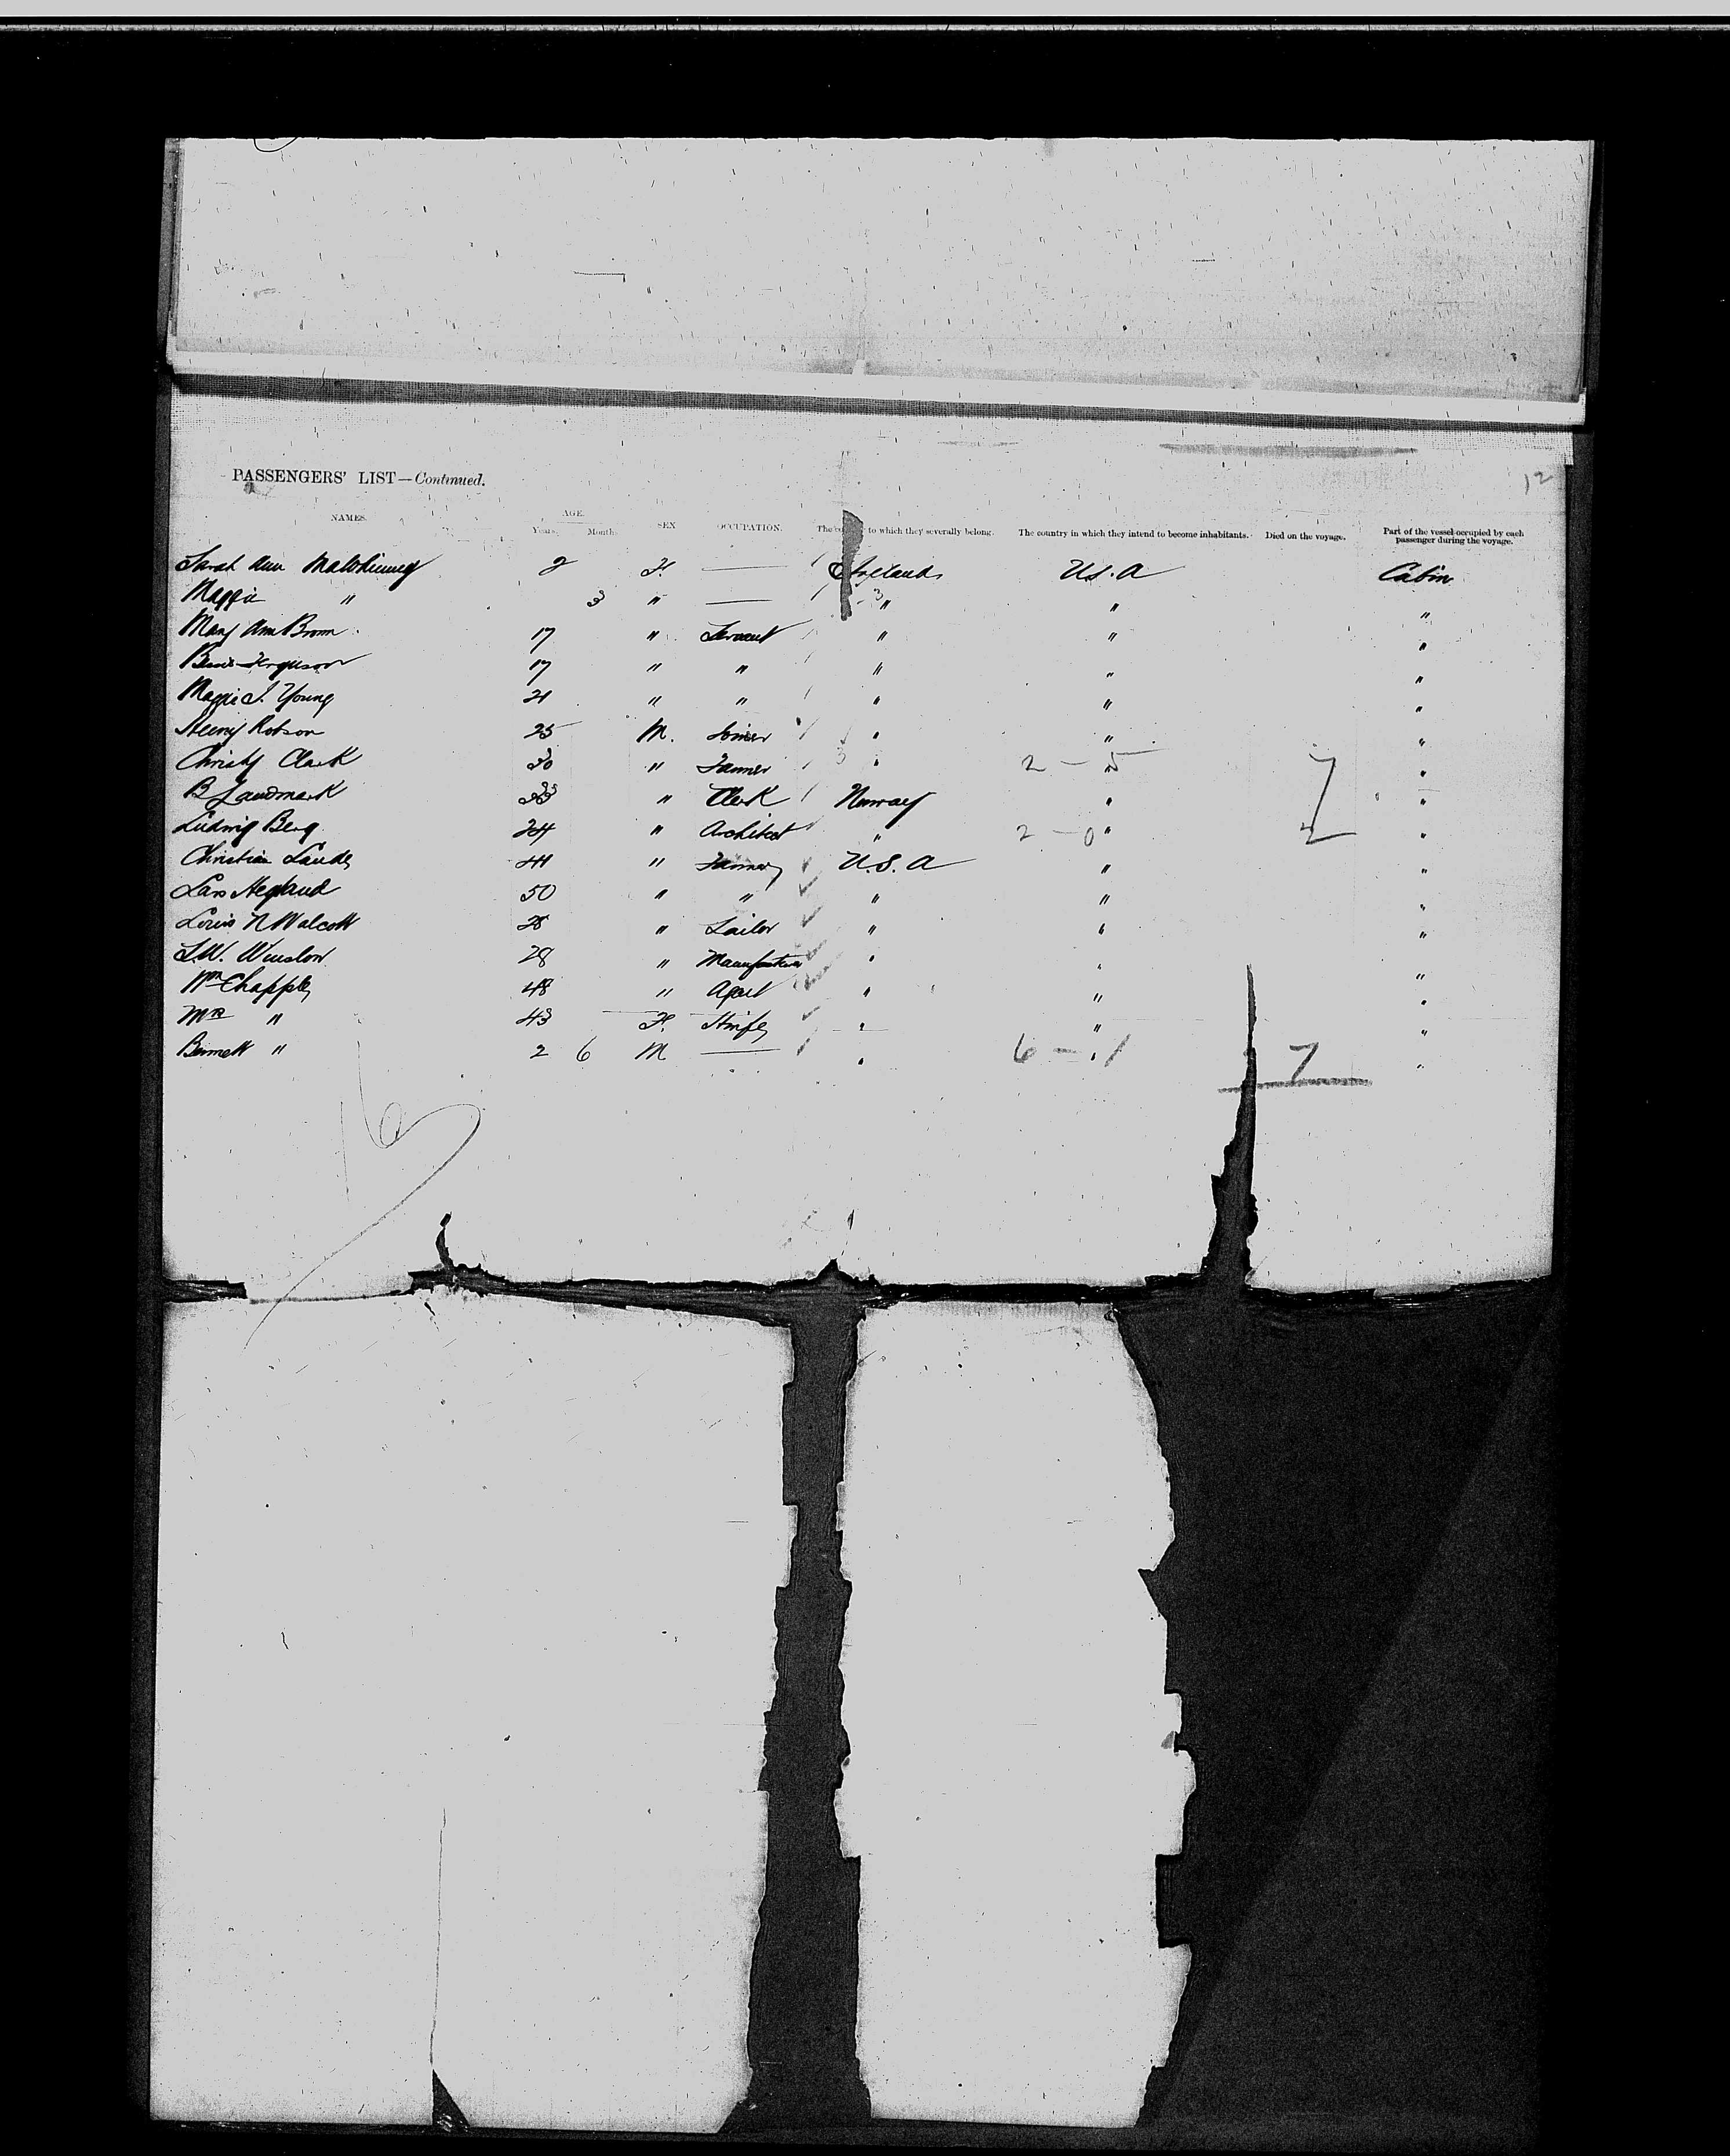 12
PASSENGERS' LIST—Continued.
NAMES. AGE. Years. Month. SEX OCCUPATION. The to which they severally belong. The country in which they intend to become inhabitants. Died on the voyage. Part of the vessel occupied by each passenger during the voyage.
Sarah Ann 2 F. — U.S.A Cabin
Maggie " 3 " — " " "
Mary Ann Brown 17 " Servant " " "
Bessie Ferguson 17 " " " " "
Maggie J. Young 21 " " " " "
Henry Robson 25 M. Joiner " " "
Christy Clark 30 " Farmer " 2 — 5 " "
B Landmark 33 " Clerk Norway " "
Ludwig Berg 24 " Architect " 2 — 0 " "
Christian 41 " Farmer U.S.A " "
Lars Hegland 50 " " " " "
Louis N Walcott 28 " Sailor " " "
L.W. Winslow 28 " Manufacturer " " "
Wm Chapple 48 " Agent " " "
Mrs " 43 F. Wife " " "
Bennett " 2 6 M — " 6 — 1 " 7 "
16